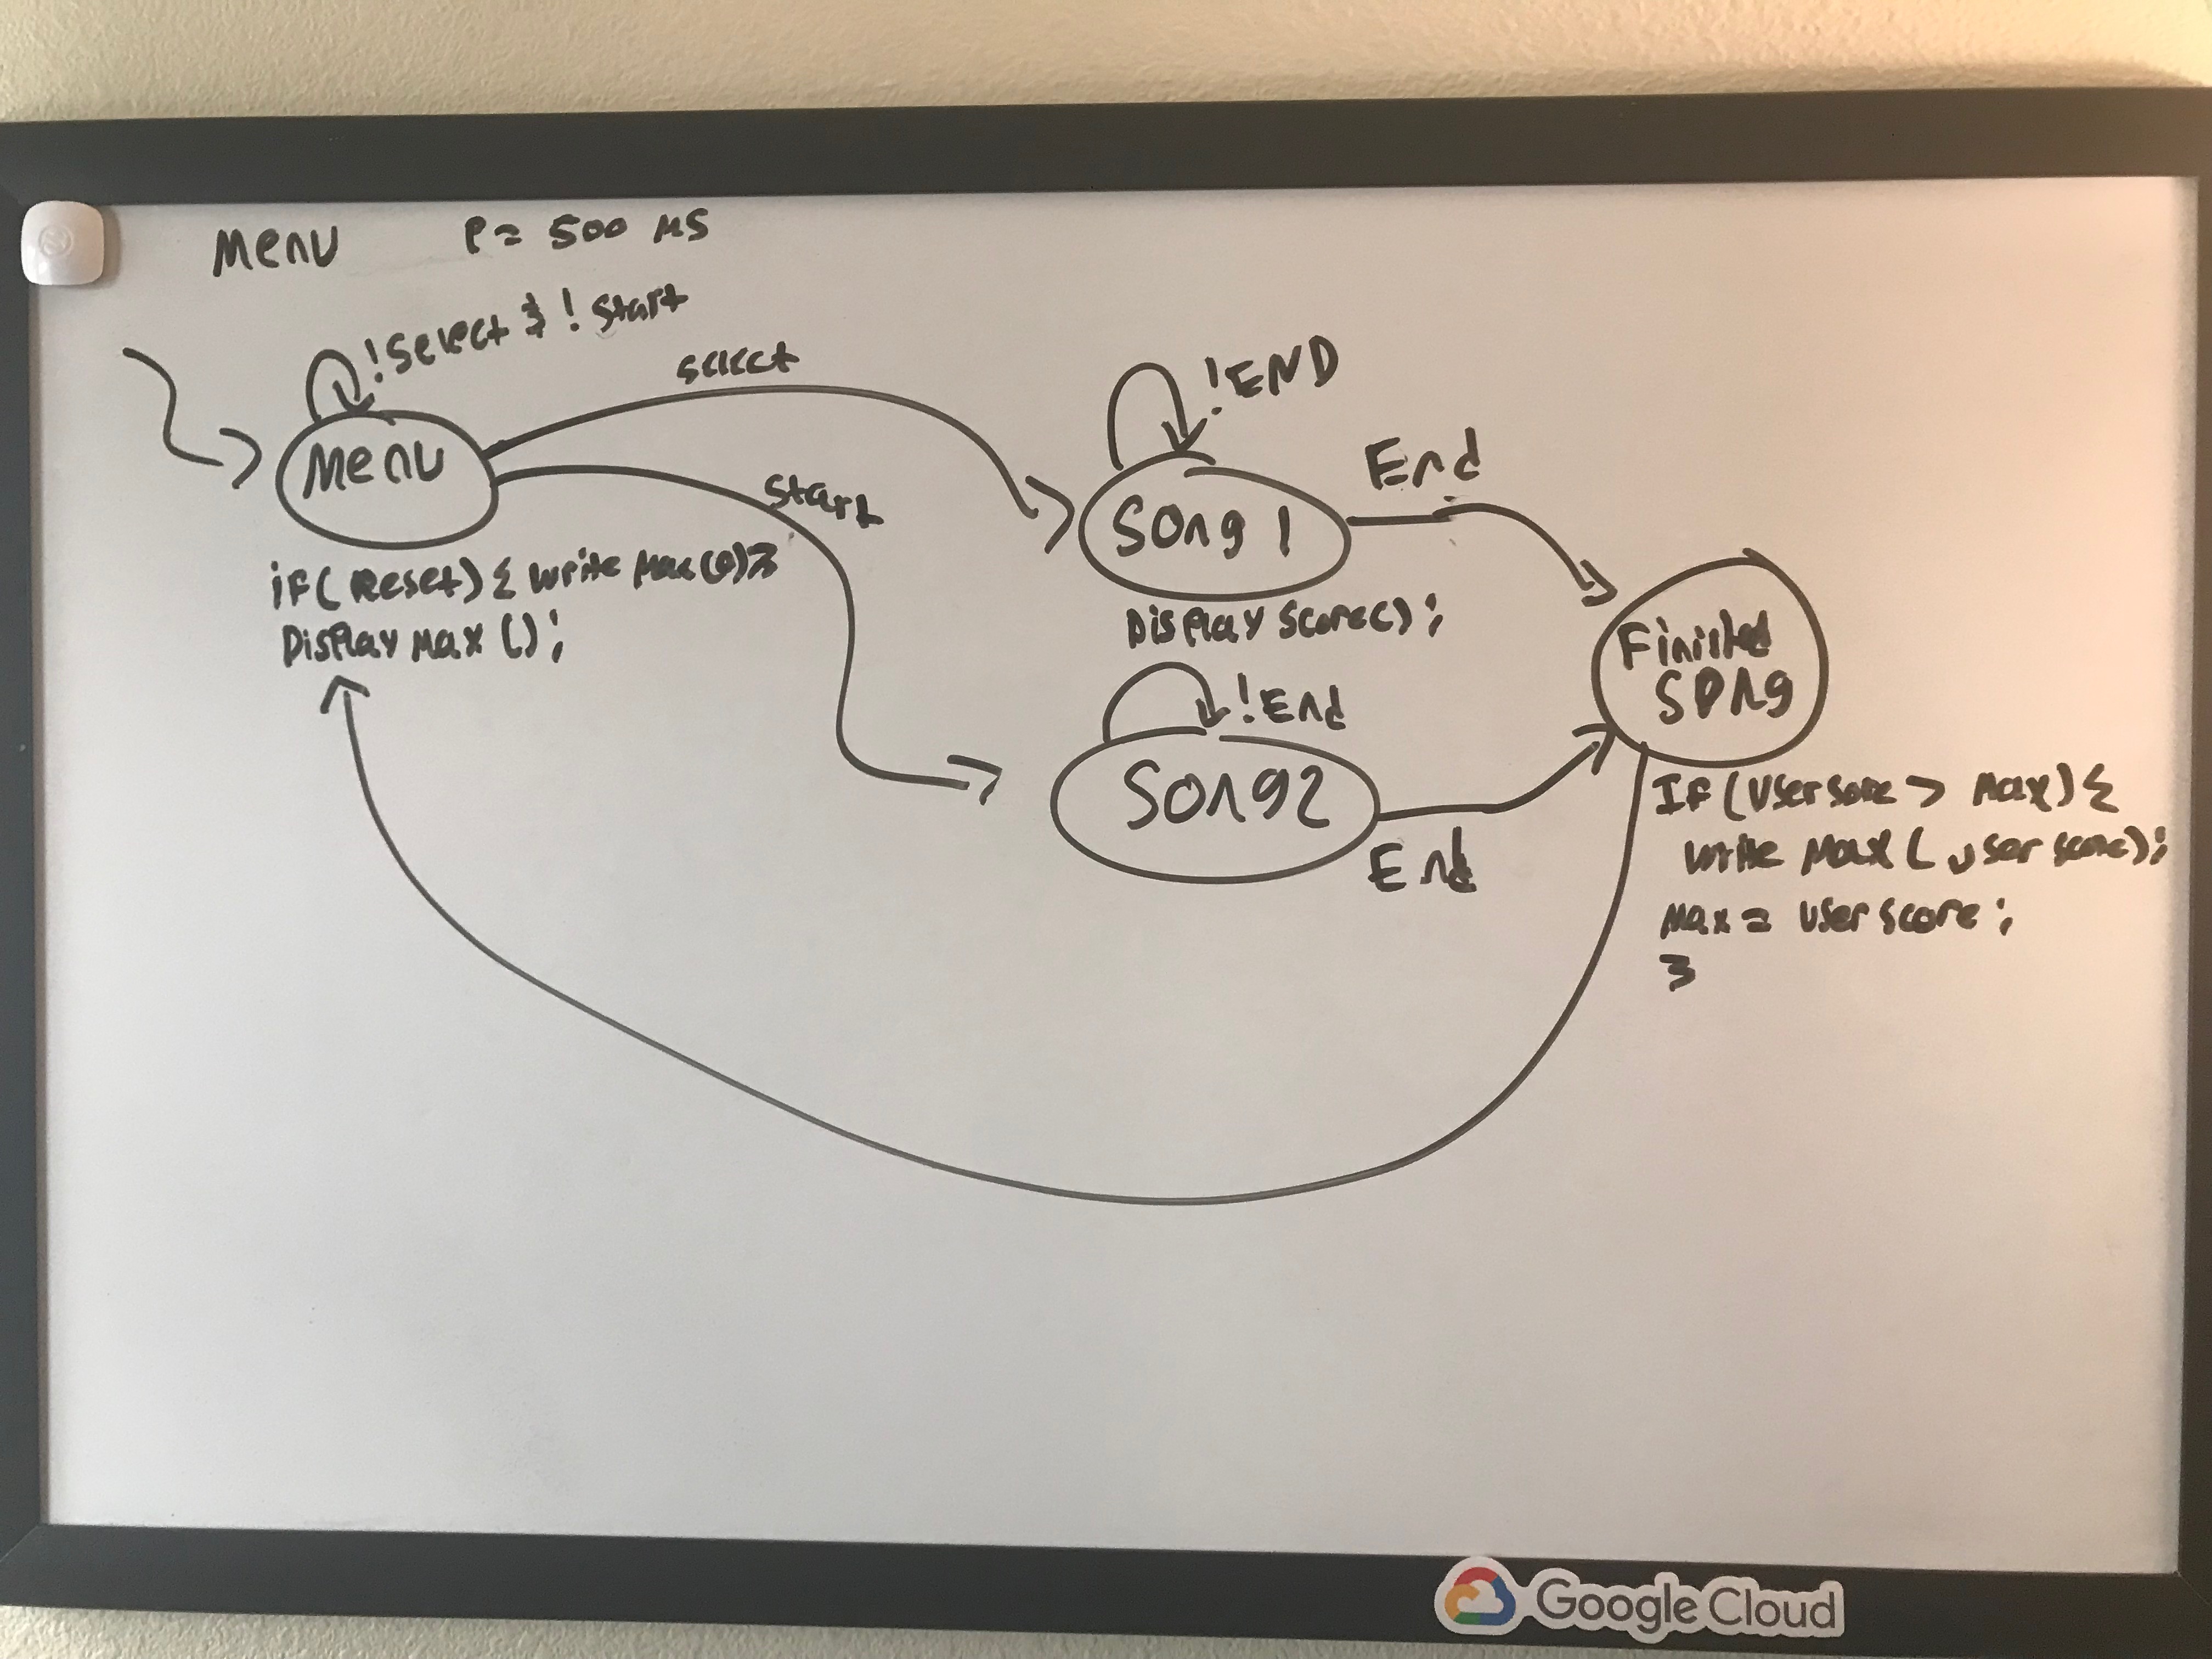 Menu P = 500 MS
!Select & !Start
select
Menu
Start
if(Reset){ write Max(0)}
Display Max();
!END
Song 1
End
Display Score();
!End
Song2
End
Finished
Song
If(User Score > Max){
write Max(user score);
Max = user score;
}
Google Cloud